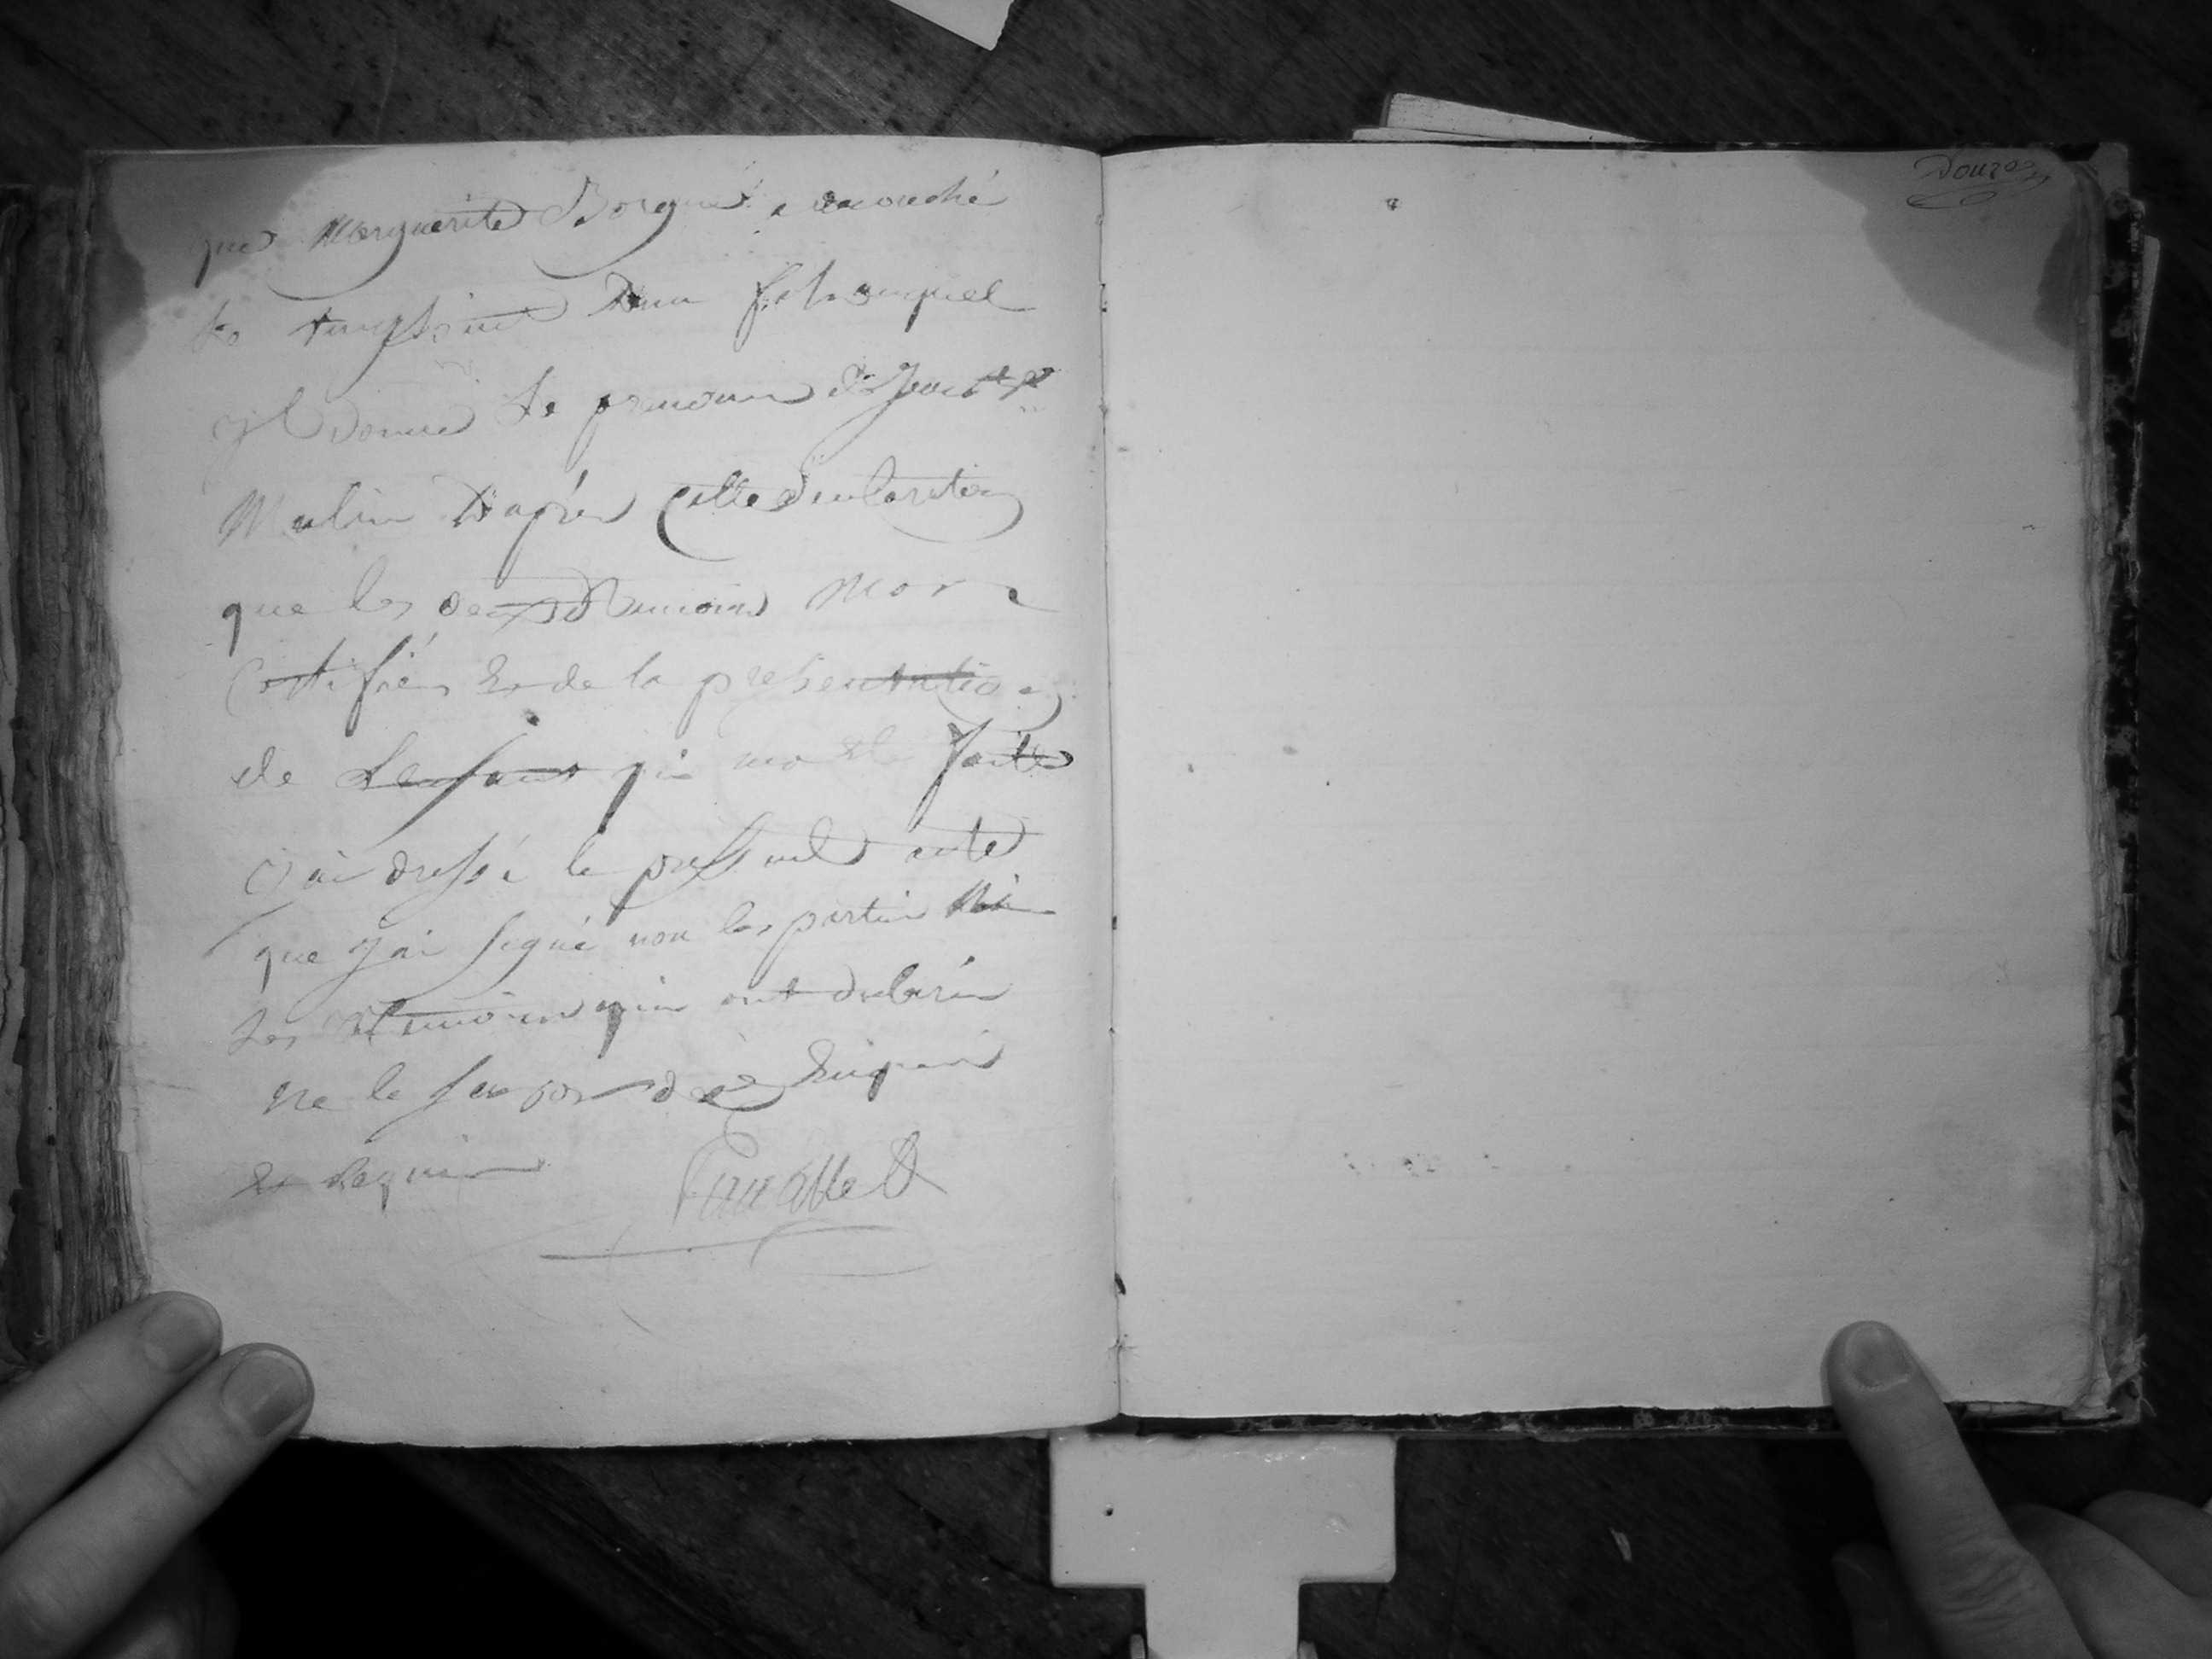 que Marguerite Borgne a acouché
le vingt Dun fils auquel
yl donne le prenom de Jean
Mulin D'après cette declaration
que les deux Temoins mon
Certifiés Et de la presentation
de Lenfant qui ma Ete faite
J'ai dressé le present acte
que J'ai signé non les parties Ni
les Temoins qui ont declarés
Ne le savoir de ce Enquis
Et Requis
Douze